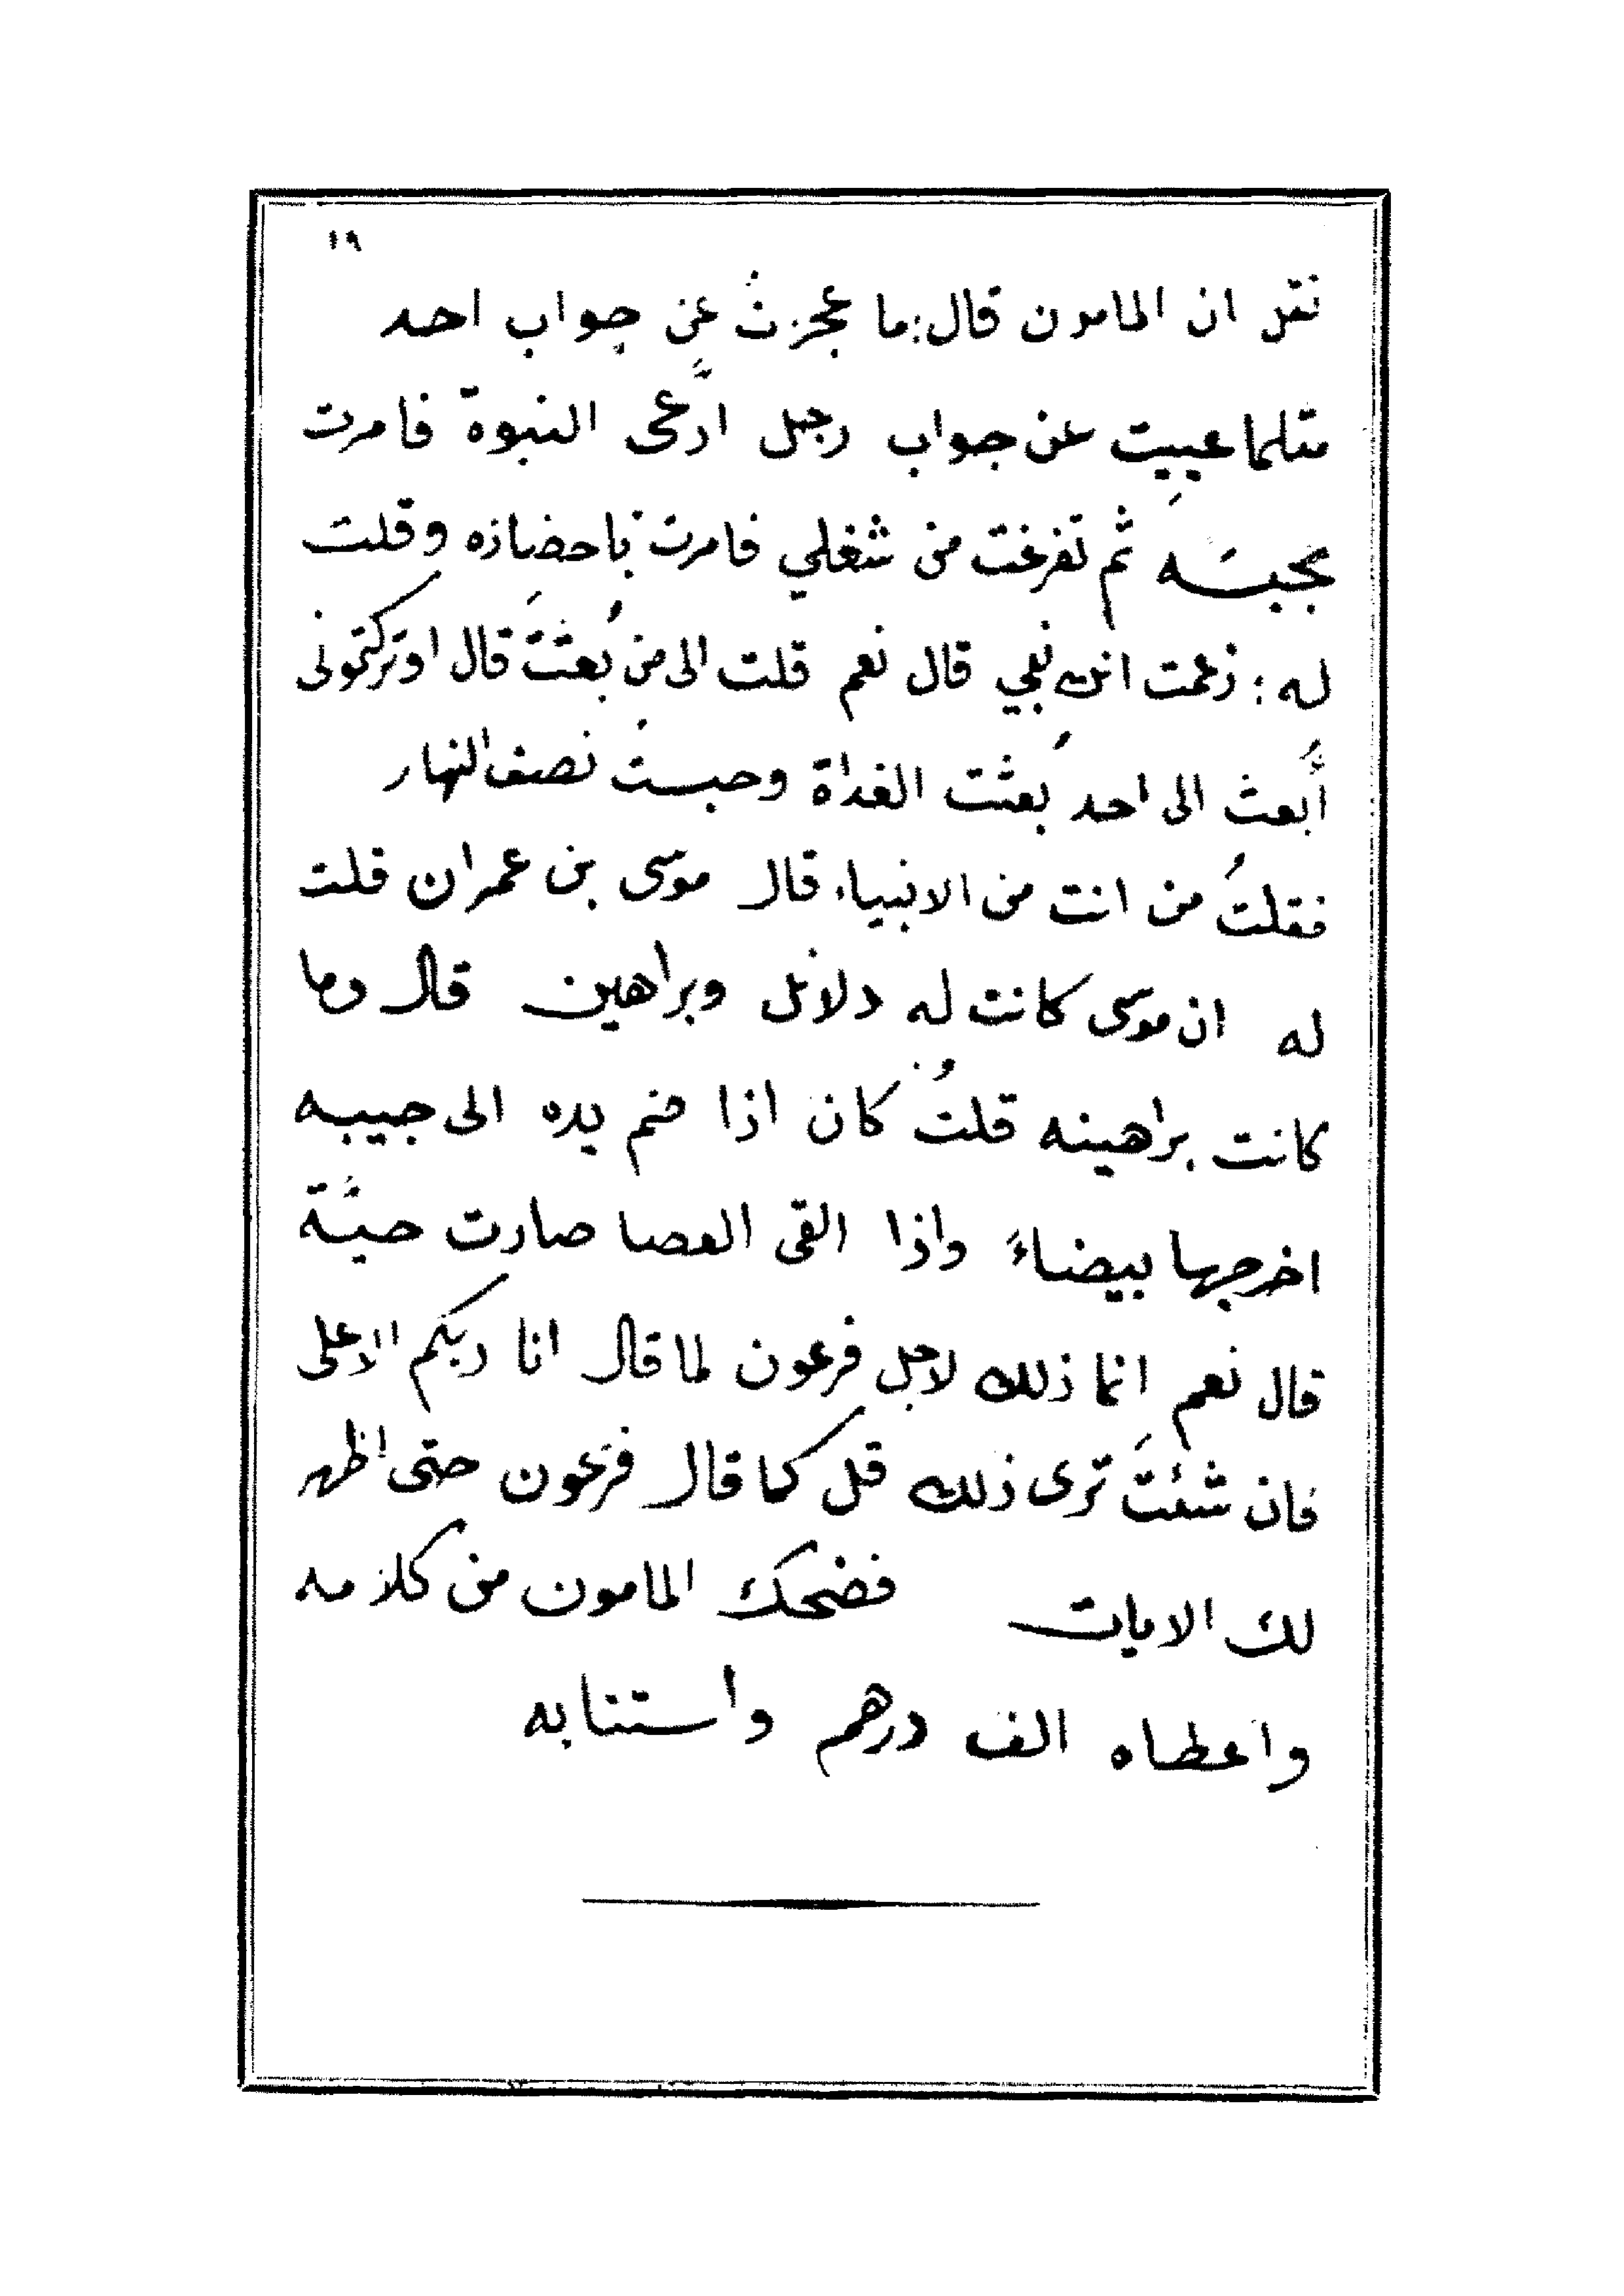 ١٩
نقل ان المامون قال: ما عجزتُ عن جواب احد
مثلما عييت عن جواب رجل ادّعى النبوة فامرت
بحبسه ثم تفرغت من شغلي فامرت باحضاره وقلت
له: زعمت انك نبي قال نعم قلت الى من بُعثتَ قال اوتركتموني
أُبعث الى احد بُعثت الغداة وحبست نصف النهار
فقلتُ من انت من الانبياء قال موسى بن عمران قلت
له ان موسى كانت له دلائل وبراهين قال وما
كانت براهينه قلتُ كان اذا ضم يده الى جيبه
اخرجها بيضاءً واذا القى العصا صارت حيّة
قال نعم انما ذلك لاجل فرعون لما قال انا ربكم الاعلى
فان شئتَ ترى ذلك قل كما قال فرعون حتى اظهر
لك الايات فضحك المامون من كلامه
واعطاه الف درهم واستتابه